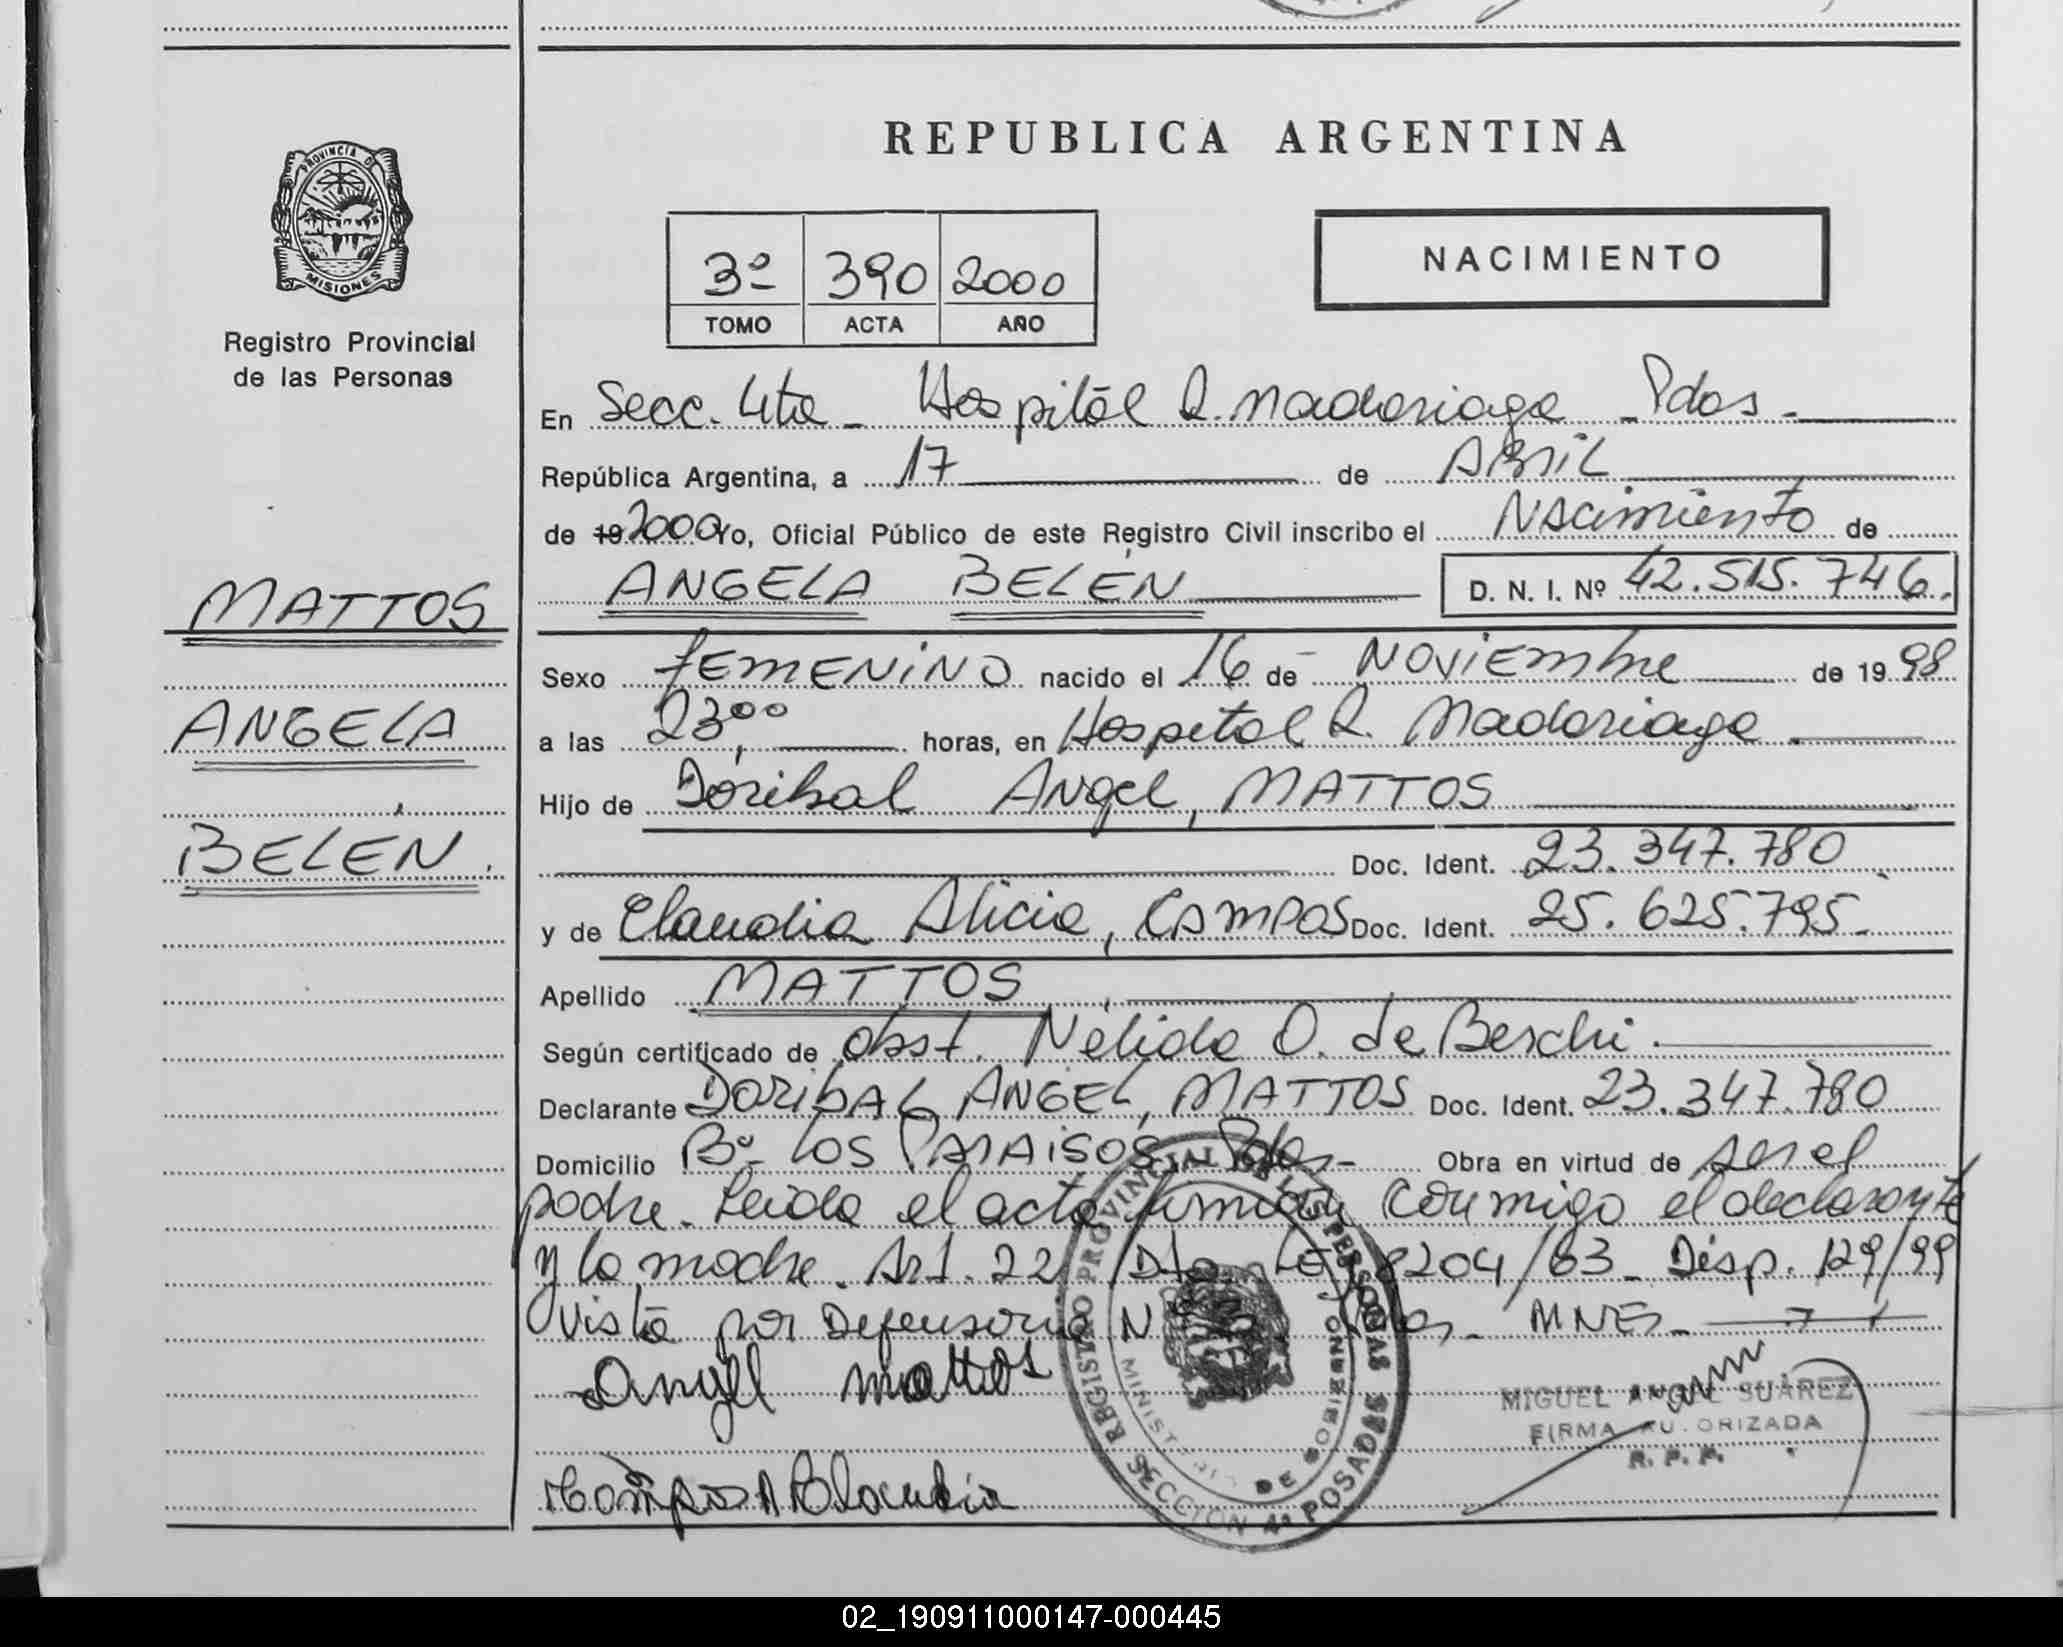 REPUBLICA ARGENTINA
PROVINCIA DE
MISIONES
Registro Provincial
de las Personas
3º 390 2000
TOMO ACTA AÑO
NACIMIENTO
En Secc. 4ta - Hospital R. Madariaga - Pdas -
República Argentina, a 17 de ABRIL
de 19 2000 Yo, Oficial Público de este Registro Civil inscribo el NAcimiento de
ANGELA BELÉN D. N. I. Nº 42.515.746.
MATTOS
ANGELA
BELÉN.
Sexo FEMENINO nacido el 16 de NOVIEMbre de 19 98
a las 23,00 horas, en Hospital R. Madariaga.
Hijo de Doribal Angel, MATTOS
Doc. Ident. 23.347.780
y de Claudia Alicia, CAMPOS Doc. Ident. 25.625.795-
Apellido MATTOS
Según certificado de obst. Nélida O. de Beschi.
Declarante DORIBAL ANGEL, MATTOS Doc. Ident. 23.347.780
Domicilio Bº Los PARAISOS, Pdas- Obra en virtud de ser el
padre. Leida el acta firman conmigo el declarante
y la madre. Art. 22 Dto. Ley 8204/63 - Disp. 129/99
Vista por Defensoria Nº Pdas - MNES -
Angel Mattos
Campos A Claudia
REGISTRO PROVINCIAL DE LAS PERSONAS
MINISTERIO DE GOBIERNO
SECCION 4a POSADAS
MIGUEL ANGEL SUÁREZ
FIRMA AUTORIZADA
R. P. P.
02_190911000147-000445